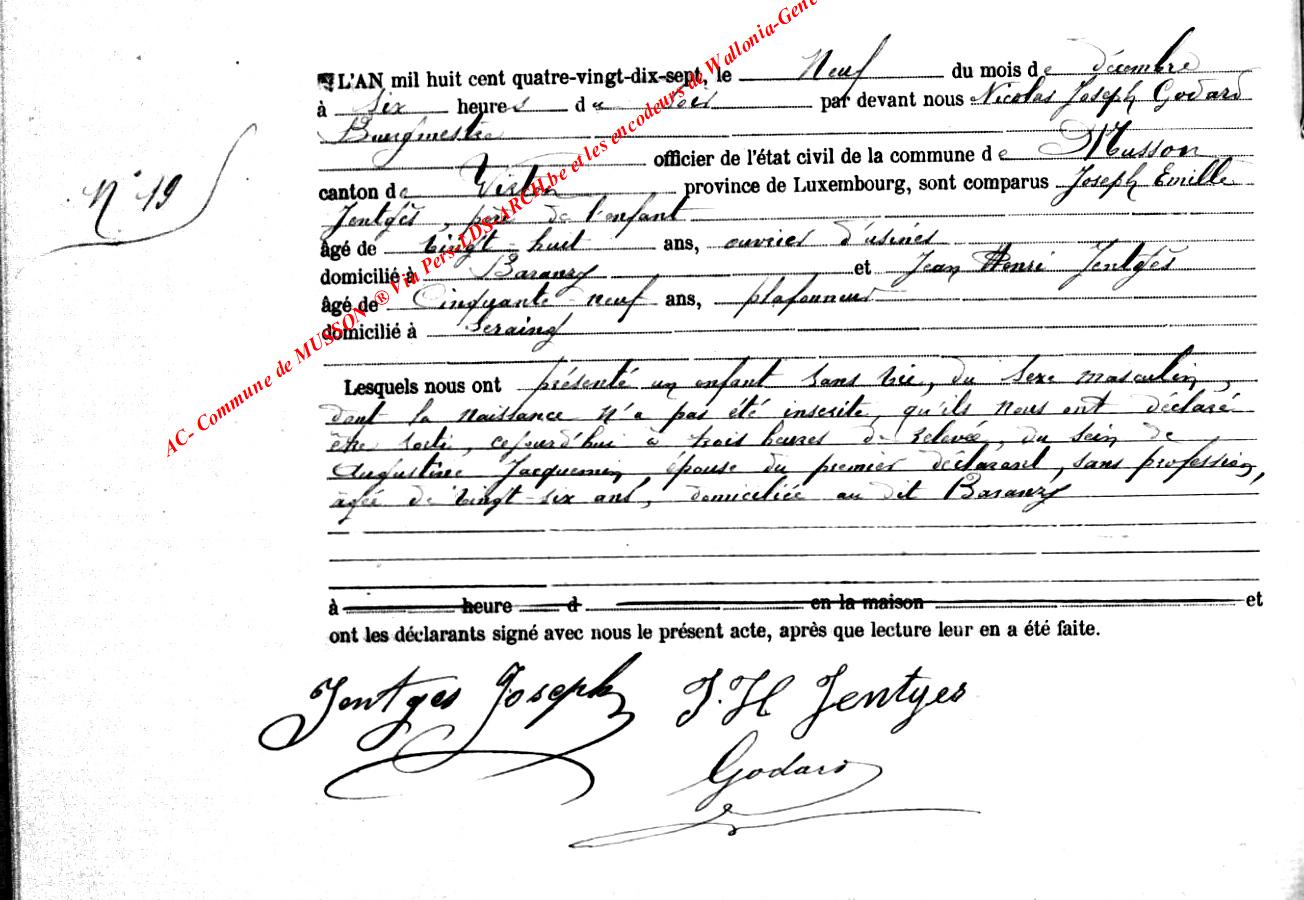 L'AN mil huit cent quatre-vingt-dix-sept, le Neuf du mois de décembre
à six heures du soir par devant nous Nicolas Joseph Godard
Bourgmestre
officier de l'état civil de la commune de Musson
N° 19
canton de Virton province de Luxembourg, sont comparus Joseph Emille
Jentges, père de l'enfant
âgé de vingt-huit ans, ouvrier d'usines
domicilié à Baranzy et Jean Henri Jentges
âgé de Cinquante-neuf ans, plafonneur
domicilié à Seraing
Lesquels nous ont présenté un enfant sans vie, du sexe masculin,
dont la naissance n'a pas été inscrite, qu'ils nous ont déclaré
être sorti, cejourd'hui à trois heures de relevée, du sein de
Augustine Jacquemin, épouse du premier déclarant, sans profession,
agée de vingt-six ans, domiciliée au dit Baranzy
à heure d en la maison et
ont les déclarants signé avec nous le présent acte, après que lecture leur en a été faite.
Jentges Joseph J. H Jentges
Godard
AC- Commune de MUSSON ® Via Pers-LDS-ARCH.be et les encodeurs de Wallonia-Gene